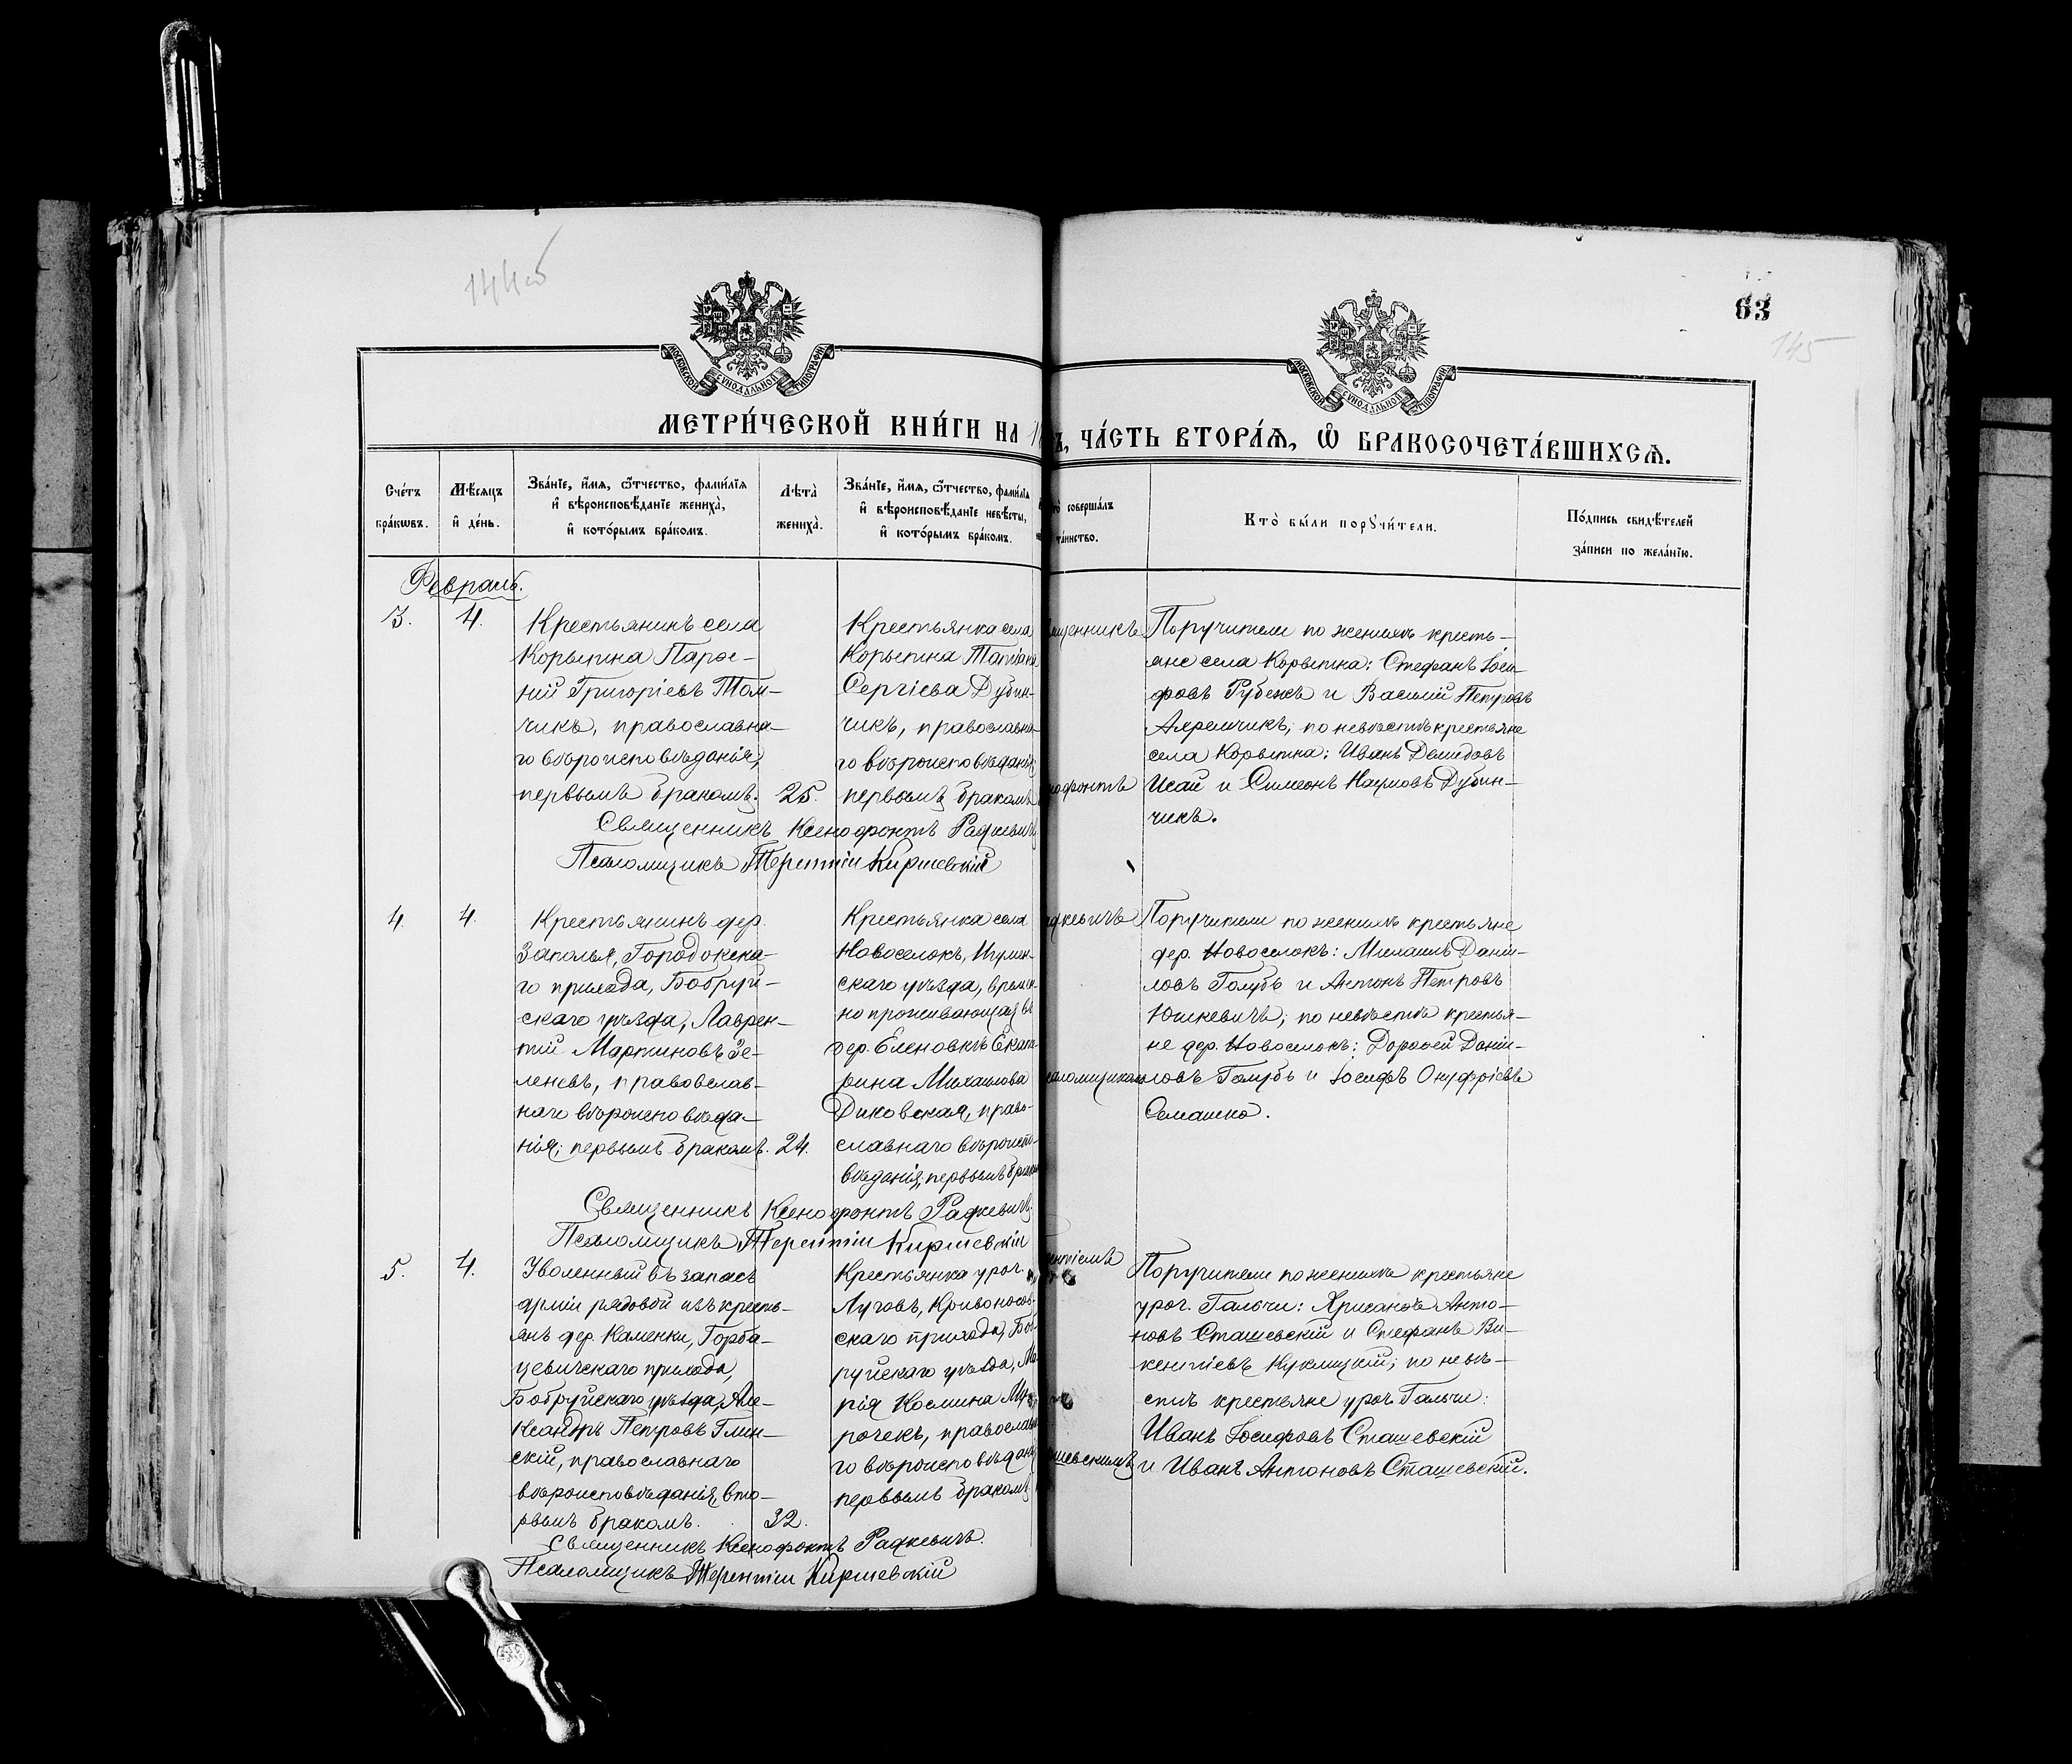 144об
63
145
МОСКОВСКОЙ СѴНОДАЛЬНОЙ ТИПОГРАФІИ
МОСКОВСКОЙ СѴНОДАЛЬНОЙ ТИПОГРАФІИ
МЕТРИ́ЧЕСКОЙ КНИ́ГИ НА
Ъ, ЧА́СТЬ ВТОРА́Ѧ, Ѽ БРАКОСОЧЕТА́ВШИХСѦ.
Сче́тъ бра́кѡвъ.
Мѣ́сѧцъ и҆ де́нь.
Зва́нїе, и҆́мѧ, ѻ҆́тчество, фами́лїѧ и҆ вѣроисповѣ́данїе жениха̀, и҆ кото́рымъ бра́комъ.
Лѣта̀ жениха̀.
Зва́нїе, и҆́мѧ, ѻ҆́тчество, фами́лїѧ и҆ вѣроисповѣ́данїе невѣ́сты, и҆ кото́рымъ бра́комъ.
то̀ соверша́лъ та́инство.
Кто̀ бы́ли порꙋчи́тели.
По́дпись свидѣ́телей за́писи по жела́нїю.
Февраль.
3.
4.
Крестьянинъ села
Корытна Парѳе-
ній Григоріевъ Том-
чикъ, православна-
го вѣроисповѣданія,
первымъ бракомъ.
25.
Крестьянка села
Корытна Татіана
Сергіева Дубин-
чикъ, православна-
го вѣроисповѣданія
первымъ бракомъ
щенникъ
нофонтъ
Поручители по женихѣ кресть-
яне села Корытна: Стефанъ Іоси-
фовъ Рубежъ и Василій Петровъ
Ахремчикъ; по невѣстѣ крестьяне
села Корытна: Иванъ Демидовъ
Исай и Симеонъ Наумовъ Дубин-
чикъ.
Священникъ Ксенофонтъ Радкевичъ
Псаломщикъ Терентій Киршевскій
4.
4.
Крестьянинъ дер.
Заполья, Городокска-
го прихода, Бобруй-
скаго уѣзда, Лаврен-
тій Мартиновъ Зе-
леневъ, православ-
наго вѣроисповѣда-
нія; первымъ бракомъ.
24.
Крестьянка села
Новоселокъ, Игумен-
скаго уѣзда, времен-
но проживающая въ
дер. Еленовкѣ Екате-
рина Михаилова
Диковская, право-
славнаго вѣроиспо-
вѣданія; первымъ брако
адкевичъ
саломщикомъ
Поручители по женихѣ крестьяне
дер. Новоселокъ: Михаилъ Дани-
ловъ Голубъ и Антонъ Петровъ
Юшкевичъ; по невѣстѣ крестья-
не дер. Новоселокъ: Дороѳей Дани-
ловъ Голубъ и Іосифъ Онуфріевъ
Семашко.
Священникъ Ксенофонтъ Радкевичъ
Псаломщикъ Терентій Киршевскій
5.
4.
Уволенный въ запасъ
арміи рядовой изъ кресть-
янъ дер. Каменки, Горба-
цевичскаго прихода,
Бобруйскаго уѣзда, Але-
ксандръ Петровъ Глин-
скій, православнаго
вѣроисповѣданія, вто-
рымъ бракомъ.
32.
Крестьянка уроч.
Луговъ, Кривонос
скаго прихода, Боб
руйскаго уѣзда, Ма
рія Космина
рочекъ, православна
го вѣроисповѣдані
первымъ бракомъ
ентіемъ
шевскимъ
Поручители по женихѣ крестьяне
уроч. Гальчи: Хрисанѳъ Анто-
новъ Сташевскій и Стефанъ Ви-
кентіевъ Куклицкій; по невѣ-
стѣ крестьяне уроч. Гальчи:
Иванъ Іосифовъ Сташевскій
и Иванъ Антоновъ Сташевскій.
Священникъ Ксенофонтъ Радкевичъ.
Псаломщикъ Терентій Киршевскій